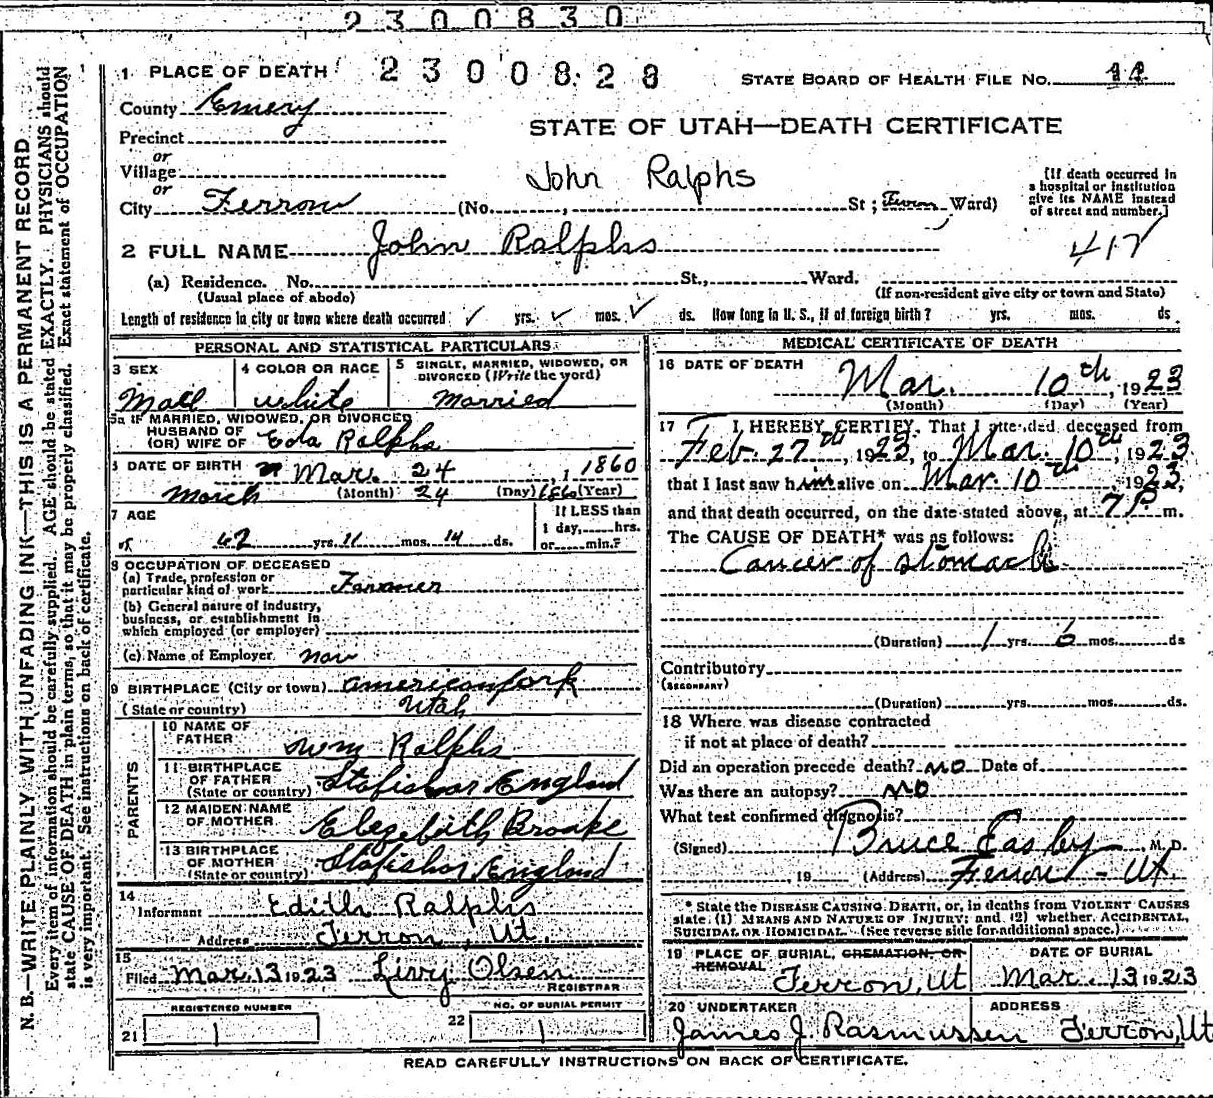 2300830
1 PLACE OF DEATH 2300828 STATE BOARD OF HEALTH FILE NO.
County Emery
STATE OF UTAH—DEATH CERTIFICATE
Precinct
or
Village
John Ralphs
or
City Ferron (No. , St ; Ferron Ward)
[If death occurred in
a hospital or institution
give its NAME instead
of street and number.]
2 FULL NAME John Ralphs
417
(a) Residence. No. St., Ward.
(Usual place of abode) (If non-resident give city or town and State)
Length of residence in city or town where death occurred ✓ yrs. ✓ mos. ✓ ds. How long in U. S., if of foreign birth? yrs. mos. ds.
PERSONAL AND STATISTICAL PARTICULARS
3 SEX 4 COLOR OR RACE 5 SINGLE, MARRIED, WIDOWED, OR
DIVORCED (Write the word)
Mail white Married
5a IF MARRIED, WIDOWED, OR DIVORCED
HUSBAND OF
(OR) WIFE OF Eda Ralphs
6 DATE OF BIRTH Mar. 24, 1860
March (Month) 24 (Day) 1860 (Year)
7 AGE If LESS than
1 day,....hrs.
62 yrs. 11 mos. 14 ds. or....min.?
8 OCCUPATION OF DECEASED
(a) Trade, profession or
particular kind of work Farmer
(b) General nature of Industry,
business, or establishment in
which employed (or employer)
(c) Name of Employer non
9 BIRTHPLACE (City or town) americanfork
(State or country) Utah
PARENTS
10 NAME OF
FATHER Wm Ralphs
11 BIRTHPLACE
OF FATHER
(State or country) Stafishar England
12 MAIDEN NAME
OF MOTHER Elezebath Broake
13 BIRTHPLACE
OF MOTHER
(State or country) Stafishar England
14
Informant Edith Ralphs
Address Ferron, Ut.
15
Filed Mar. 13 1923 Livy Olsen
REGISTRAR
REGISTERED NUMBER NO. OF BURIAL PERMIT
21 22
MEDICAL CERTIFICATE OF DEATH
16 DATE OF DEATH
Mar. 10th, 1923
(Month) (Day) (Year)
17 I HEREBY CERTIFY, That I attended deceased from
Feb. 27th, 1923, to Mar. 10th, 1923
that I last saw him alive on Mar. 10th, 1923,
and that death occurred, on the date stated above, at 7 P. m.
The CAUSE OF DEATH* was as follows:
Cancer of stomach
(Duration) 1 yrs. 6 mos. ds
Contributory
(SECONDARY)
(Duration) yrs. mos. ds.
18 Where was disease contracted
if not at place of death?
Did an operation precede death? no Date of
Was there an autopsy? no
What test confirmed diagnosis?
(Signed) Bruce Easley M. D.
, 19 (Address) Ferron - Ut.
* State the DISEASE CAUSING DEATH, or, in deaths from VIOLENT CAUSES
state (1) MEANS AND NATURE OF INJURY; and (2) whether ACCIDENTAL,
SUICIDAL OR HOMICIDAL. (See reverse side for additional space.)
19 PLACE OF BURIAL, CREMATION, OR
REMOVAL DATE OF BURIAL
Ferron, Ut Mar. 13 1923
20 UNDERTAKER ADDRESS
James J Rasmussen Ferron, Ut
READ CAREFULLY INSTRUCTIONS ON BACK OF CERTIFICATE.
N. B.—WRITE PLAINLY WITH UNFADING INK—THIS IS A PERMANENT RECORD
Every item of information should be carefully supplied. AGE should be stated EXACTLY. PHYSICIANS should
state CAUSE OF DEATH in plain terms, so that it may be properly classified. Exact statement of OCCUPATION
is very important. See instructions on back of certificate.